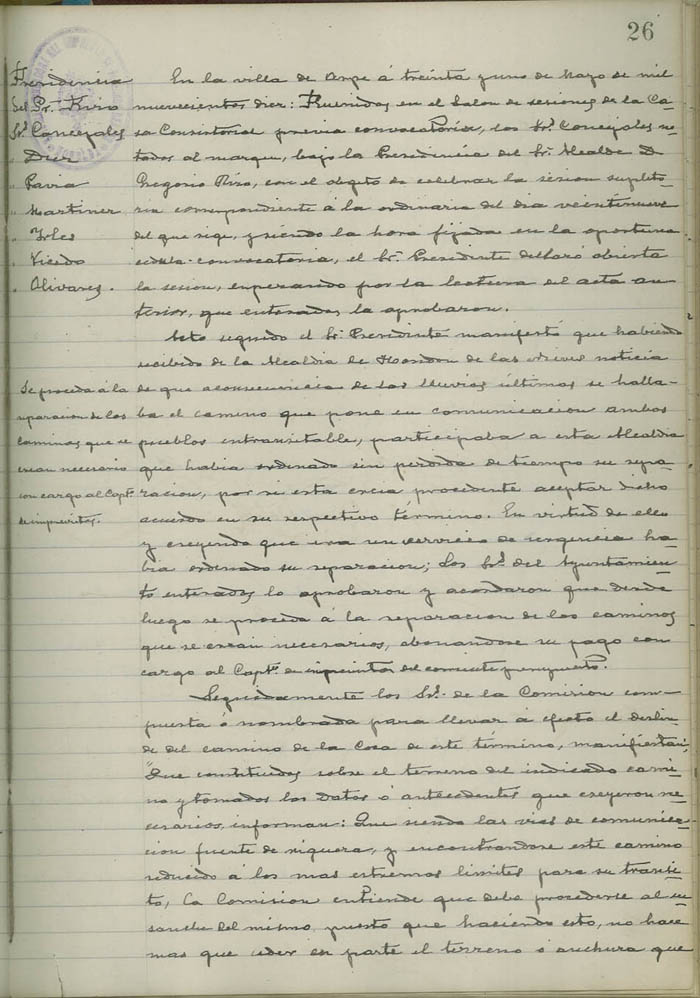 26
Presidencia
del Sr. Rizo
Sres. Concejales
" Diez
" Pavia
" Martinez
" Yrles
" Vicedo
" Olivares.
En la villa de Aspe á treinta y uno de Mayo de mil
nuevecientos diez: Reunidos en el Salon de sesiones de la Ca-
sa Consistorial previa convocatoria, los Sres. Concejales no-
tados al margen, bajo la Presidencia del Sr. Alcalde D.
Gregorio Rizo, con el objeto de celebrar la sesion supleto-
ria correspondiente á la ordinaria del dia veintinueve
del que rige, y siendo la hora fijada en la oportuna
cedula-convocatoria, el Sr. Presidente declaró abierta
la sesion, enpezando por la lectura del acta an-
terior, que enterados la aprobaron.
Acto seguido el Sr. Presidente manifestó que habiendo
recibido de la Alcaldia de Hondon de las Nieves noticia
Se proceda á la
reparacion de los
caminos que se
crean necesario
con cargo al Capto.
de imprevistos.
de que a consecuencia de las lluvias últimas se halla-
ba el camino que pone en comunicacion ambos
pueblos intransitable, participaba a esta Alcaldia
que habia ordenado sin perdida de tiempo su repa-
racion, por si esta creia procedente aceptar dicho
acuerdo en su respectivo término. En virtud de ello
y creyendo que era un servicio de urgencia ha-
bia ordenado su reparacion; Los Sres. del Ayuntamien-
to enterados lo aprobaron y acordaron que desde
luego se proceda á la reparacion de los caminos
que se crean necesarios, abonandose su pago con
cargo al Capto. de imprevistos del corriente presupuesto.
Seguidamente los Sres. de la Comision com-
puesta ó nombrada para llevar á efecto el deslin-
de del camino de la Coca de este término, manifiestan:
"Que constituidos sobre el terreno del indicado cami-
no y tomados los datos ó antecedentes que creyeron ne-
cesarios, informan: Que siendo las vias de comunica-
cion fuente de riqueza, y encontrandose este camino
reducido á los mas estremos limites para su transi-
to, la Comision entiende que debe procederse al en-
sanche del mismo, puesto que haciendo esto, no hace
mas que ceder en parte el terreno ó anchura que